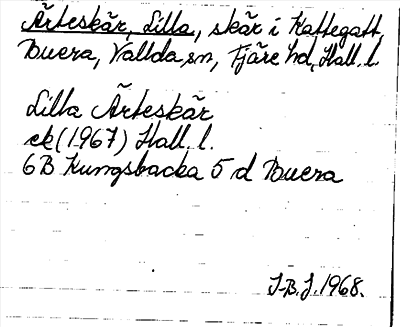 Ärteskär, Lilla, skär i Kattegatt,
Buera, Vallda sn, Fjäre hd, Hall. l.
Lilla Ärteskär
ek (1967) Hall. l.
6B Kungsbacka 5 d Buera
J-B.J. 1968.